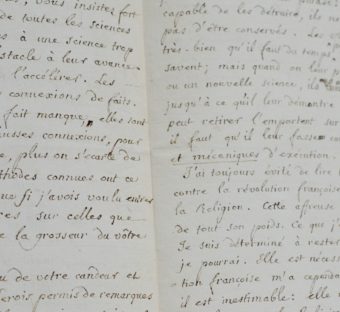 , vous insistez fort
de toutes les sciences
s à une science trop
bstacle à leur avance
l'accélérer. Les
connexions de faits.
fait manque, elles sont
usses connexions, pour
e, plus on s'écarte de
thodes connues ont ce
que si j'avois voulu entrer
res sur celles que
la grosseur du vôtre
u de votre candeur et
serois permis de remarques
capable de les détruire, ils ne
pas d'être conservés. Les
très-bien qu'il faut du temps
savent; mais quand on leur
ou un nouvelle science, ils
jusqu'à ce qu'il leur démontre
peut retirer l'emportent sur
il faut qu'il leur fasse
et mécaniques d'exécution.
J'ai toujours évité de lire
contre la révolution françoise
la Religion. Cette affreuse
de tout son poids. Ce que j'
Je suis déterminé à rester
je pourrai. Elle est néces
tion françoise m'a cependa
il est inestimable: elle